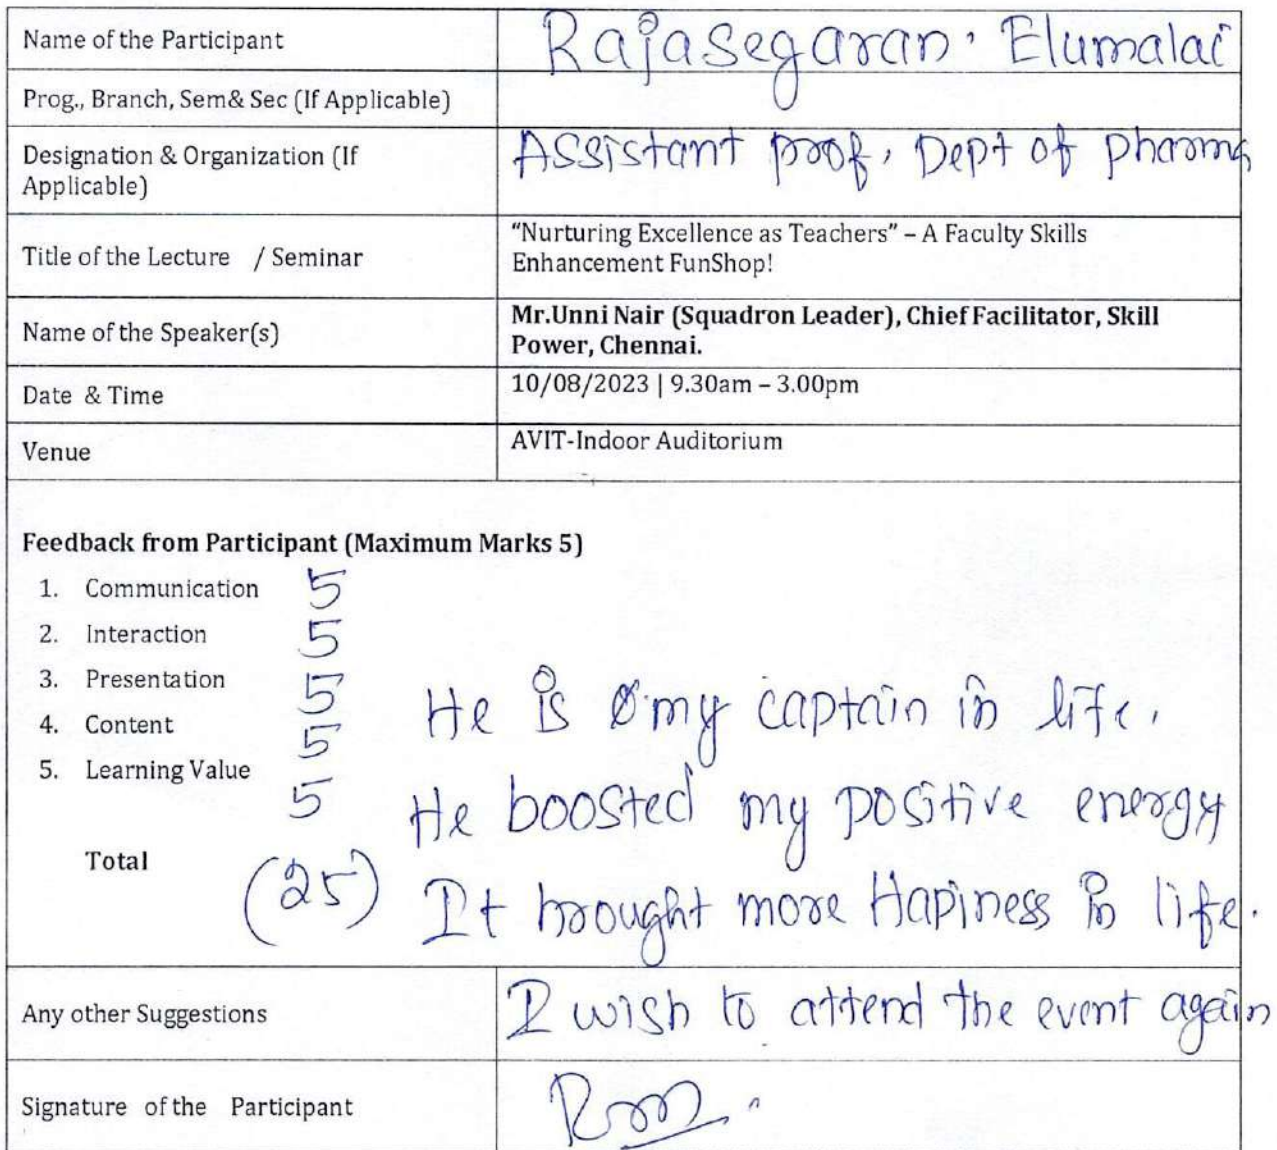 Name of the Participant
Rajasegaran. Elumalai
Prog., Branch, Sem& Sec (If Applicable)
Designation & Organization (If
Applicable)
Assistant prof, Dept of pharma
Title of the Lecture / Seminar
"Nurturing Excellence as Teachers" – A Faculty Skills
Enhancement FunShop!
Name of the Speaker(s)
Mr.Unni Nair (Squadron Leader), Chief Facilitator, Skill
Power, Chennai.
Date & Time
10/08/2023 | 9.30am – 3.00pm
Venue
AVIT-Indoor Auditorium
Feedback from Participant (Maximum Marks 5)
1. Communication 5
2. Interaction 5
3. Presentation 5
4. Content 5
5. Learning Value 5
Total (25)
He is my captain in life.
He boosted my positive energy
It brought more Hapiness in life.
Any other Suggestions
I wish to attend the event again
Signature of the Participant